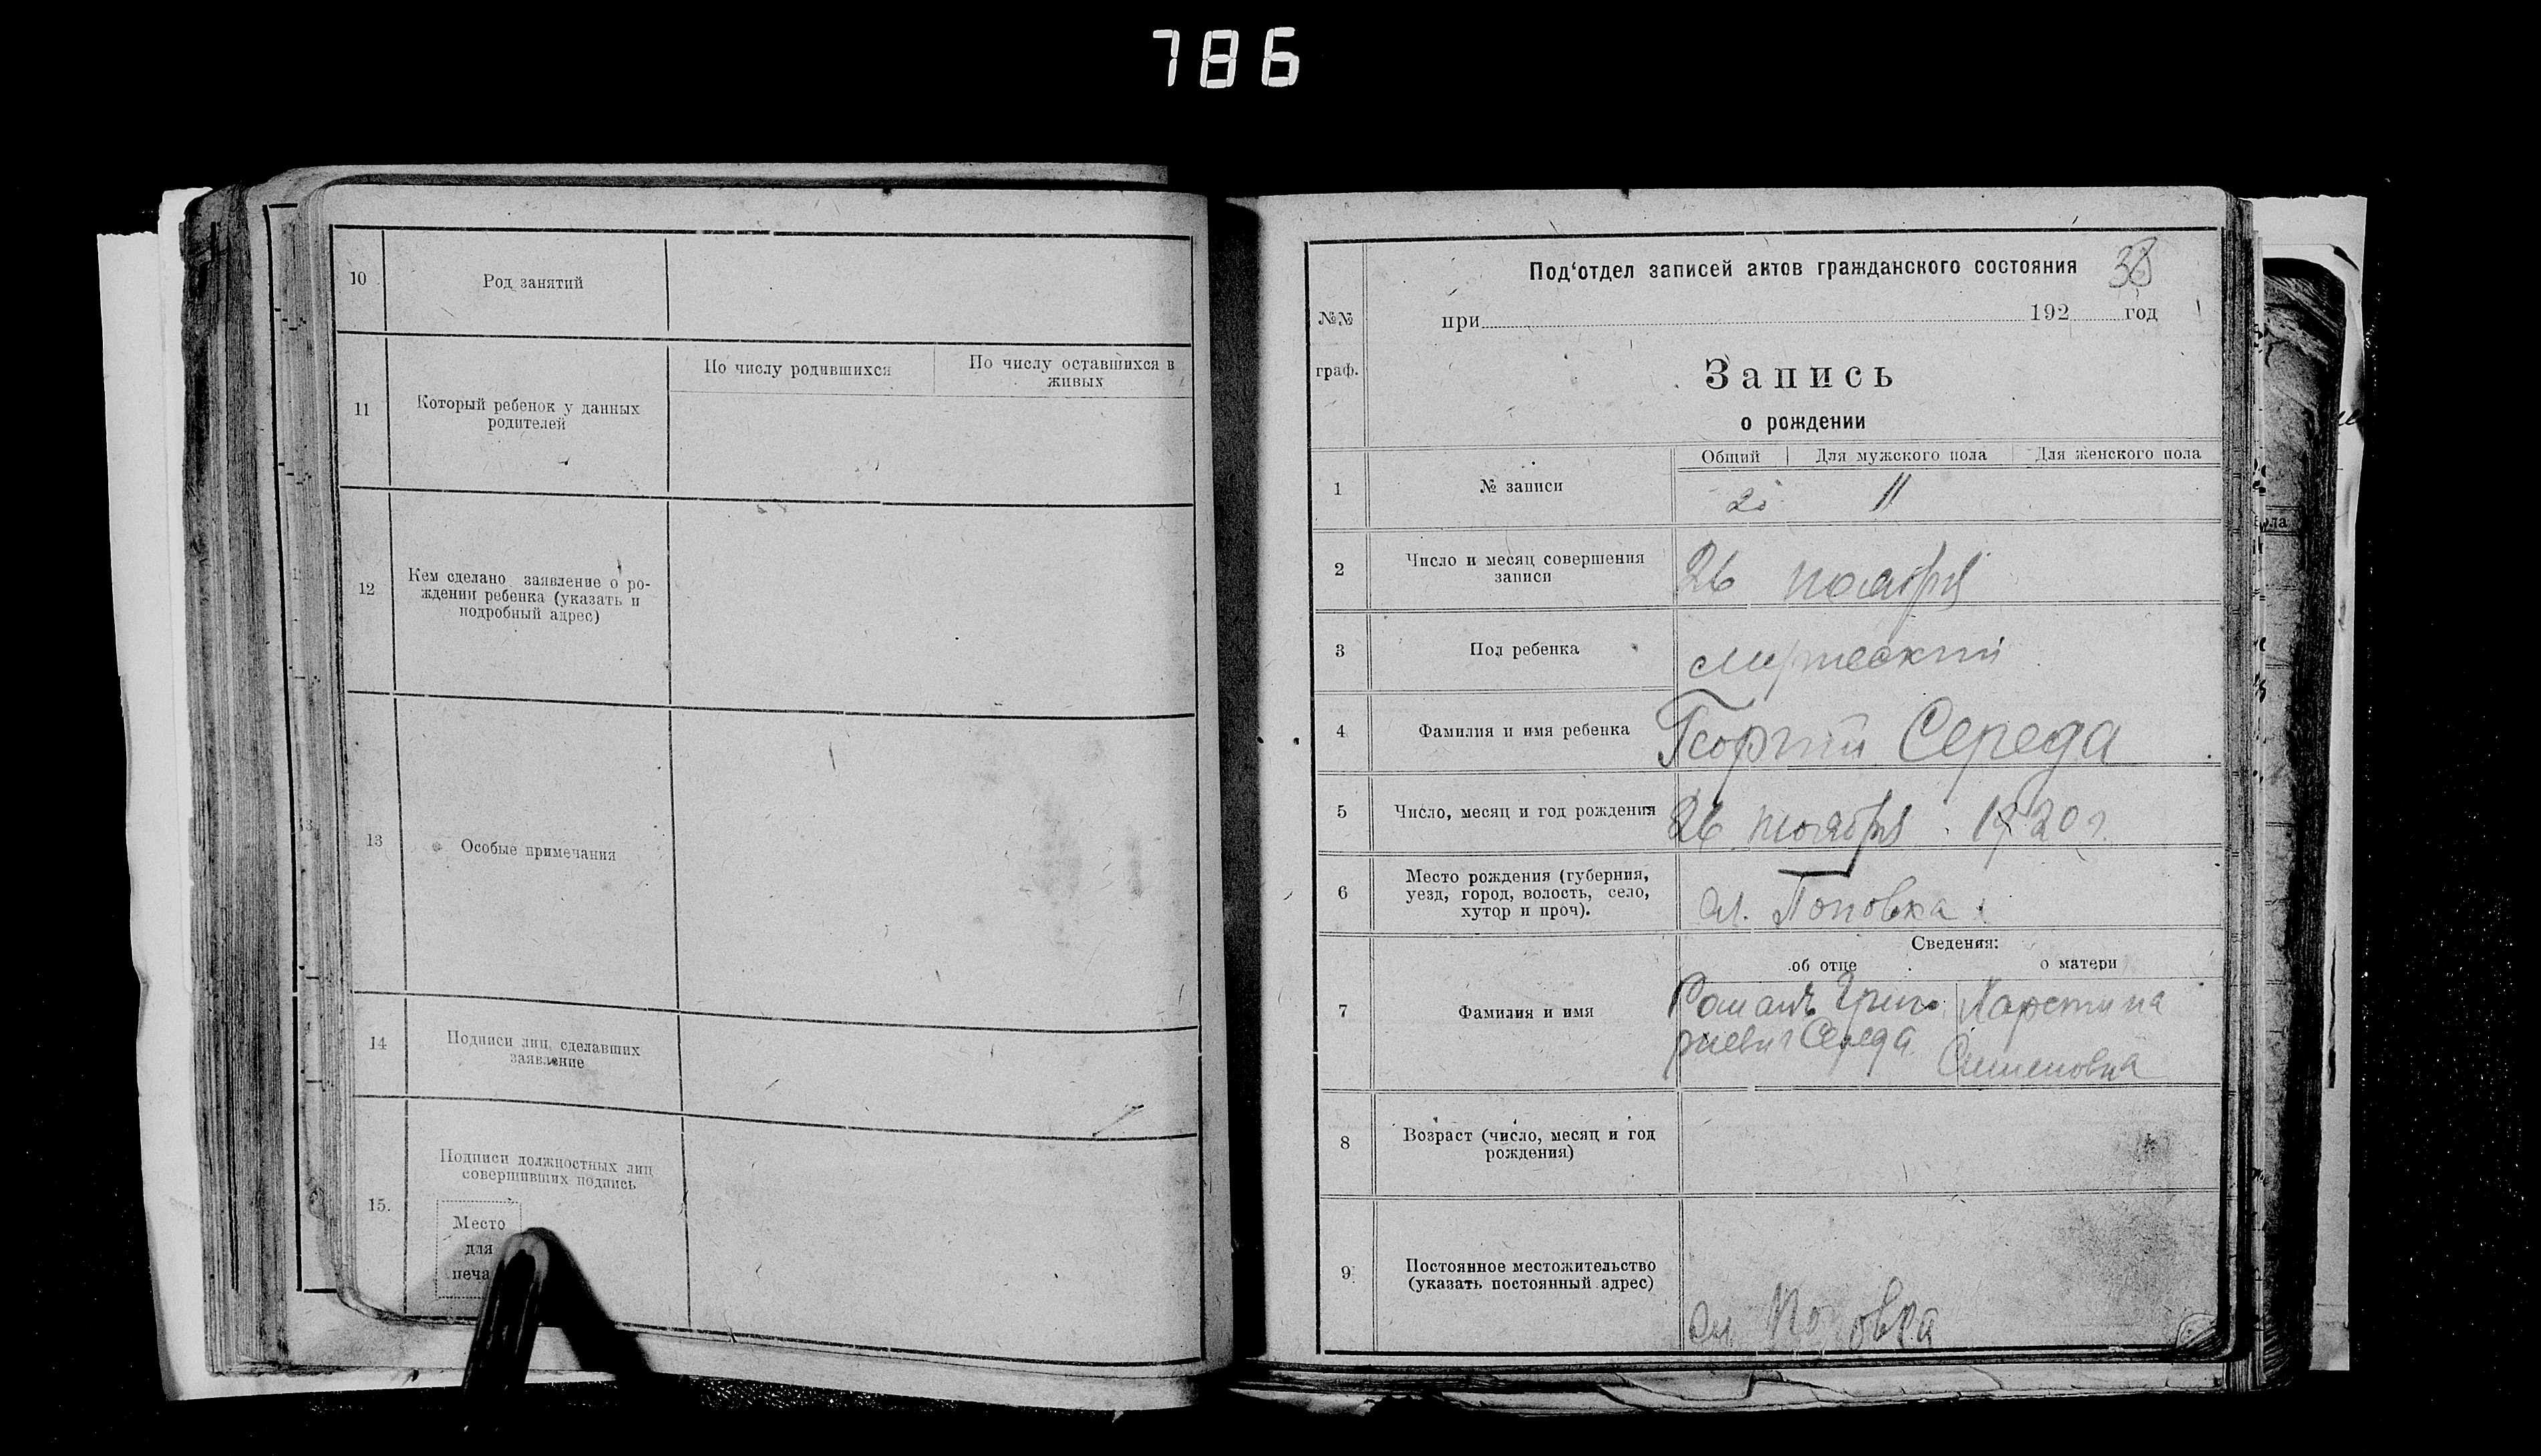 786
10
Род занятий
11
Который ребенок у данных
родителей
По числу родившихся
По числу оставшихся в
живых
12
Кем сделано заявление о ро-
ждении ребенка (указать и
подробный адрес)
13
Особые примечания
14
Подписи лиц, сделавших
заявление
15.
Подписи должностных лиц
совершивших подпись
Место
для
печа
Под‘отдел записей актов гражданского состояния
при 192 год
№№
граф.
Запись
о рождении
Общий Для мужского пола Для женского пола
1 № записи 11
2 Число и месяц совершения
записи
26 ноября
3 Пол ребенка мужеский
4 Фамилия и имя ребенка Георгий Середа
5 Число, месяц и год рождения 26 ноября 1920 г.
6 Место рождения (губерния,
уезд, город, волость, село,
хутор и проч).
сл. Поповка
Сведения:
об отце о матери
7 Фамилия и имя
Романъ Григо
риевич Середа
Харетина
Семеновна
8 Возраст (число, месяц и год
рождения)
9 Постоянное местожительство
(указать постоянный адрес)
сл. Поповка